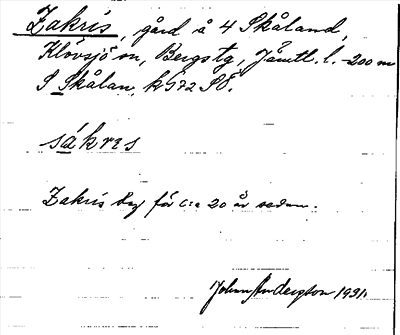 Zakris, gård å 4 Skåland,
Klövsjö sn, Bergs tg, Jämtl. l. -200 m
S Skålan, k 572 SÖ.
sákres
Zakris byg för c:a 20 år sedan.
Johan Anderzson 1931.